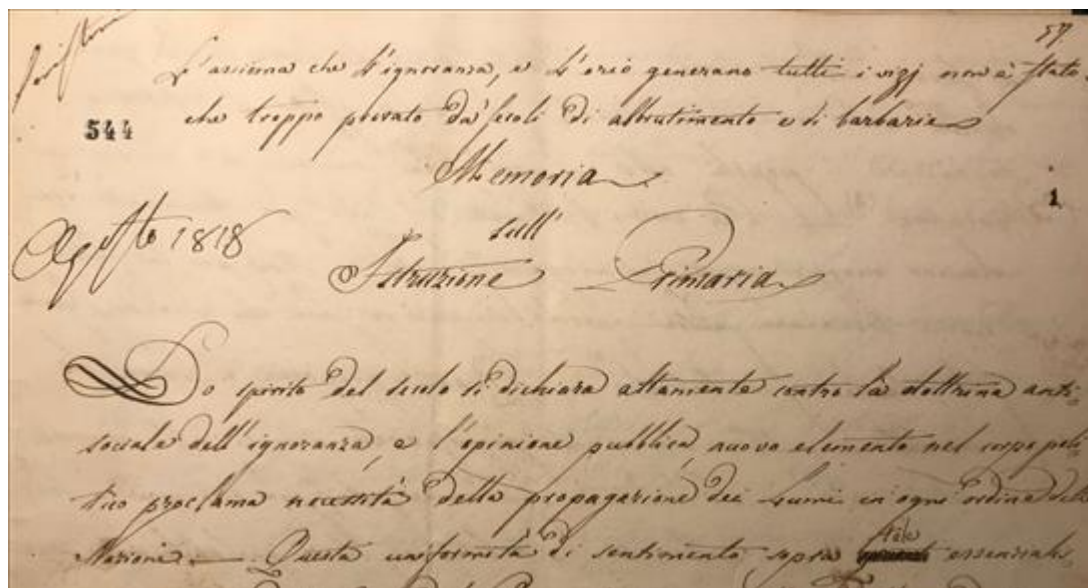 57
L'assioma che l'ignoranza, e l'ozio generano tutti i vizj non è stato
544
che troppo provato da' secoli di abbrutimento e di barbarie
Memoria
1
Agosto 1818
sull'
Istruzione Primaria
Lo spirito del secolo si dichiara altamente contro la dottrina anti=
sociale dell'ignoranza, e l'opinione pubblica nuovo elemento nel corpo poli=
tico proclama necessità della propagazione dei lumi in ogni ordine della
Nazione. — Questa uniformità di sentimento sopra tale essenziale